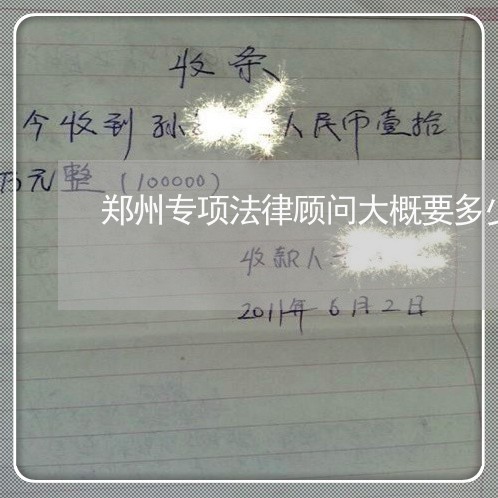 收条
今收到孙 人民币壹拾
万元整（100000）
郑州专项法律顾问大概要多少
收款人
2011年6月2日